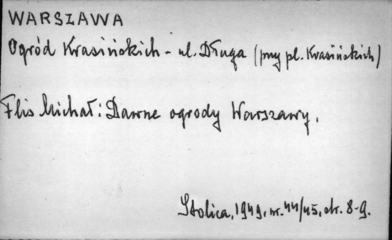 WARSZAWA
Ogród Krasińskich - ul. Długa (przy pl. Krasińskich)
Flis Michał: Dawne ogrody Warszawy.
Stolica, 1949, nr. 44/45, str. 8-9.